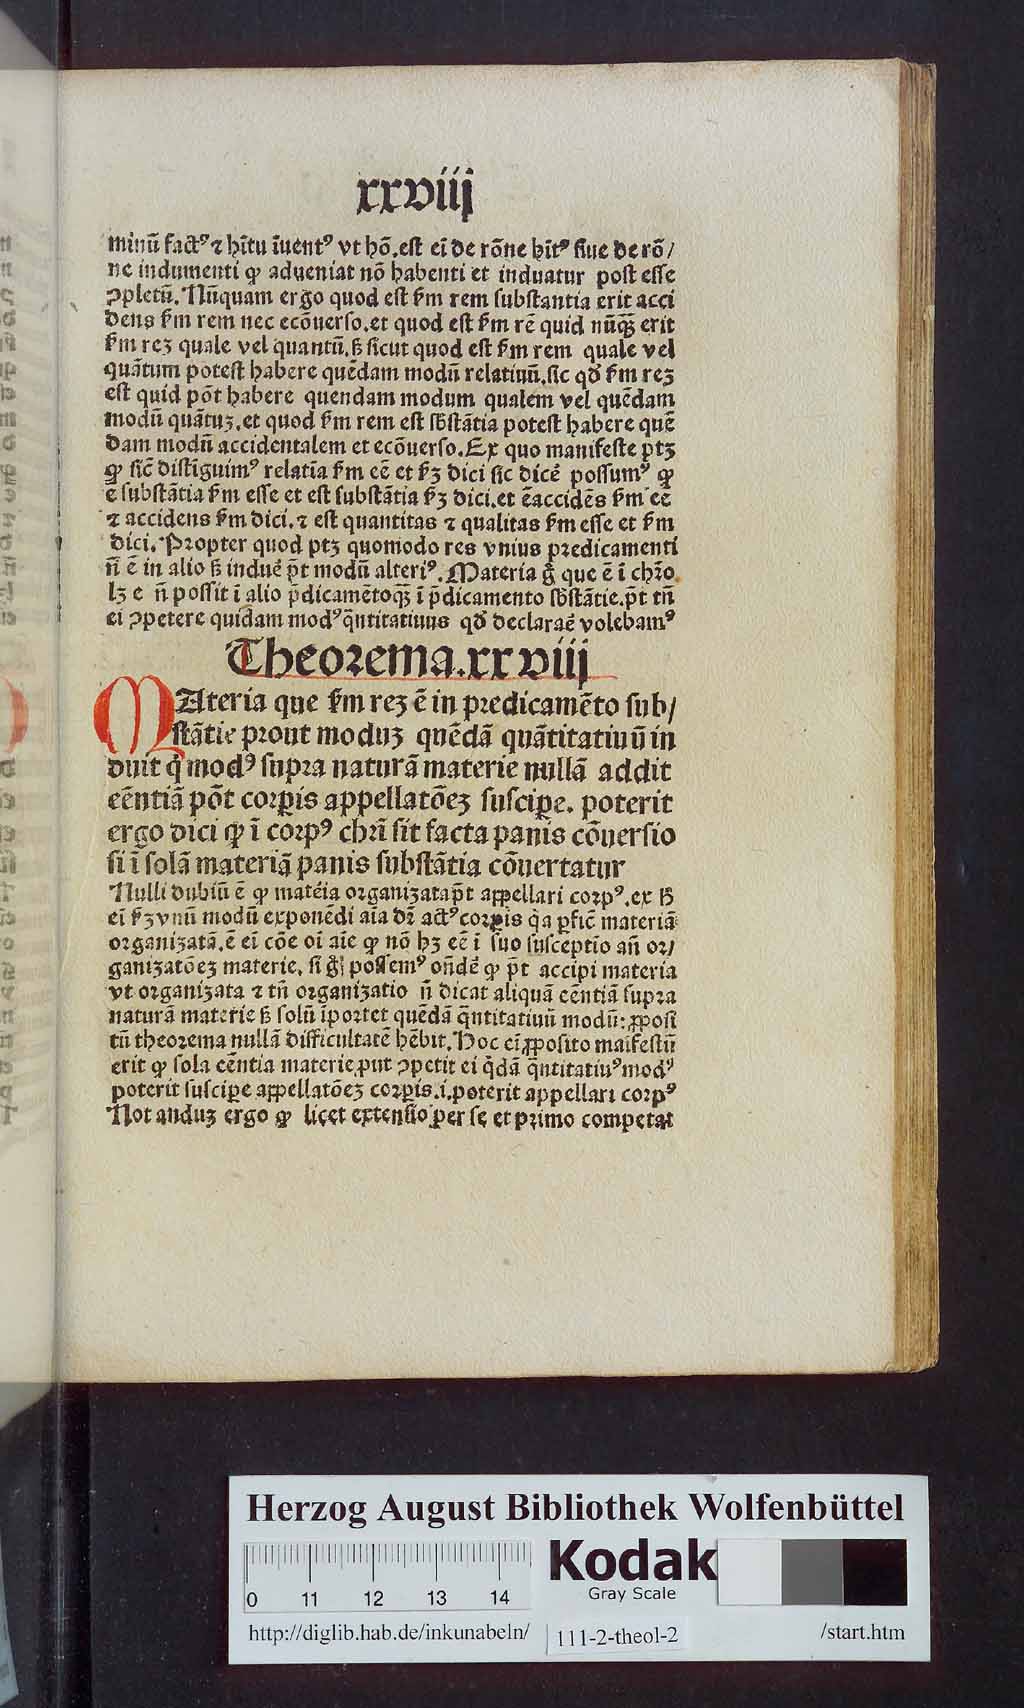 xxviij
minū fact⁹ ⁊ hītu īuent⁹ vt hō.est eī de rōne hīt⁹ siue de rō/
ne indumenti ꝙ adueniat nō habenti et induatur post esse
ↄpletū. Nūquam ergo quod est ẜm rem substantia erit acci
dens ẜm rem nec ecōuerso.et quod est ẜm rē quid nūqꝫ erit
ẜm reꝫ quale vel quantū.ß sicut quod est ẜm rem quale vel
quātum potest habere quēdam modū relatiuū.sic qđ ẜm reꝫ
est quid pōt habere quendam modum qualem vel quēdam
modū quātuꝫ.et quod ẜm rem est sb̄stātia potest habere quē
dam modū accidentalem et ecōuerso. Ex quo manifeste ptꝫ
ꝙ sic̄ distīguim⁹ relatīa ẜm eē et ẜꝫ dici sic dicē possum⁹ ꝙ
ē substātia ẜm esse et est substātia ẜꝫ dici.et ē accidēs ẜm eē
⁊ accidens ẜm dici.⁊ est quantitas ⁊ qualitas ẜm esse et ẜm
dici. Propter quod ptꝫ quomodo res vnius predicamenti
n̄ ē in alio ß induē p̄t modū alteri⁹. Materia g̊ que ē ī chr̄o
lꝫ e n̄ possit ī alio p̄dicamētoqꝫ ī p̄dicamento sb̄stātie.p̄t tn̄
ei ↄpetere quidam mod⁹ q̄ntitatiuus qđ declaraē volebam⁹
Theorema.xxviij
MAteria que ẜm reꝫ ē in predicamēto sub/
stātie prout moduꝫ quēdā quātitatiuū in
duit q̇ mod⁹ supra naturā materie nullā addit
eēntiā pōt corꝑis appellatōeꝫ susciꝑe. poterit
ergo dici ꝙ ī corp⁹ chr̄i sit facta panis cōuersio
si ī solā materiā panis substātia cōuertatur
Nulli dubiū ē ꝙ matēia organizata p̄t appellari corp⁹.ex ħ
eī ẜꝫ vnū modū exponēdi aīa dr̄ act⁹ corꝑis q̇a ꝑfic̄ materiā
organizatā.ē eī cōe oī aīe ꝙ nō hꝫ eē ī suo susceptīo an̄ or/
ganizatōeꝫ materie. si g̊ possem⁹ on̄dē ꝙ p̄t accipi materia
vt organizata ⁊ tn̄ organizatio n̄ dicat aliquā eēntiā supra
naturā materie ß solū īportet quēdā q̄ntitatiuū modū: ꝓposi
tū theorema nullā difficultatē hēbit. Hoc eī ꝓposito maīfestū
erit ꝙ sola eēntia materie ꝓut ↄpetit ei q̇dā q̄ntitatiu⁹ mod⁹
poterit susciꝑe appellatōeꝫ corꝑis.i.poterit appellari corp⁹
Notanduꝫ ergo ꝙ licet extensio per se et primo competat
Herzog August Bibliothek Wolfenbüttel
0 11 12 13 14
Kodak
Gray Scale
http://diglib.hab.de/inkunabeln/ 111-2-theol-2 /start.htm